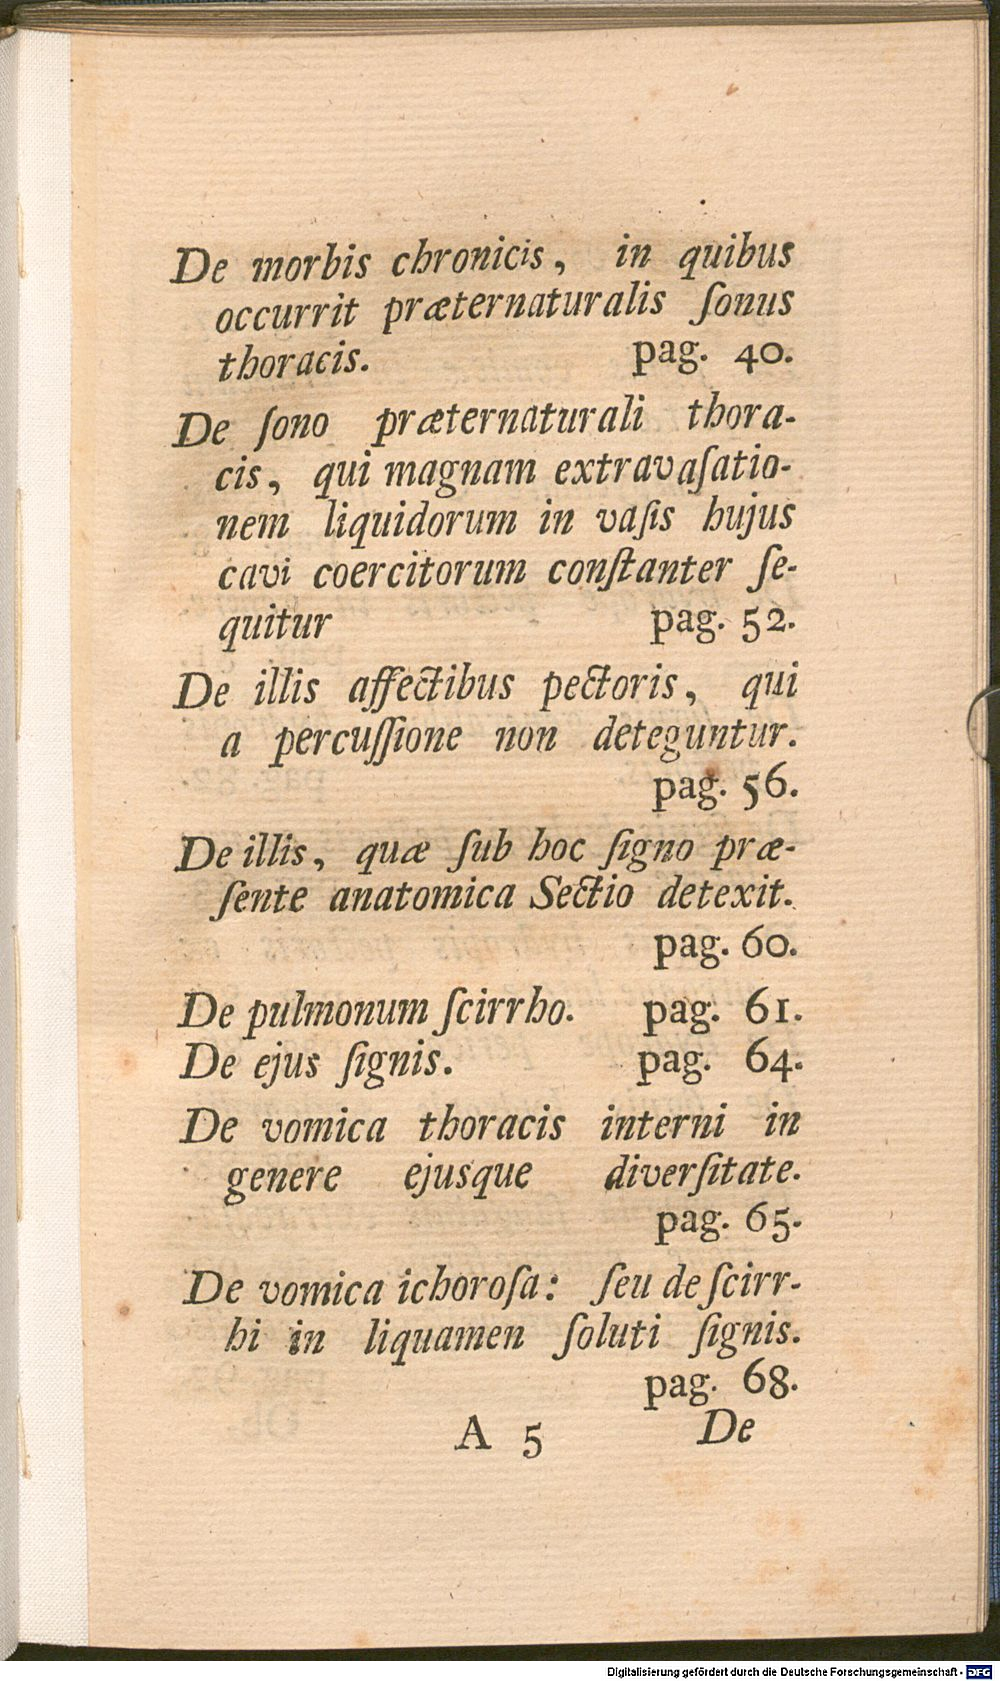 De morbis chronicis, in quibus
occurrit præternaturalis ſonus
thoracis. pag. 40.
De ſono præternaturali thora-
cis, qui magnam extravaſatio-
nem liquidorum in vaſis hujus
cavi coercitorum conſtanter ſe-
quitur pag. 52.
De illis affectibus pectoris, qui
a percuſſione non deteguntur.
pag. 56.
De illis, quæ ſub hoc ſigno præ-
ſente anatomica Sectio detexit.
pag. 60.
De pulmonum ſcirrho. pag. 61.
De ejus ſignis. pag. 64.
De vomica thoracis interni in
genere ejusque diverſitate.
pag. 65.
De vomica ichoroſa: ſeu de ſcirr-
hi in liquamen ſoluti ſignis.
pag. 68.
A 5 De
Digitalisierung gefördert durch die Deutsche Forschungsgemeinschaft - DFG